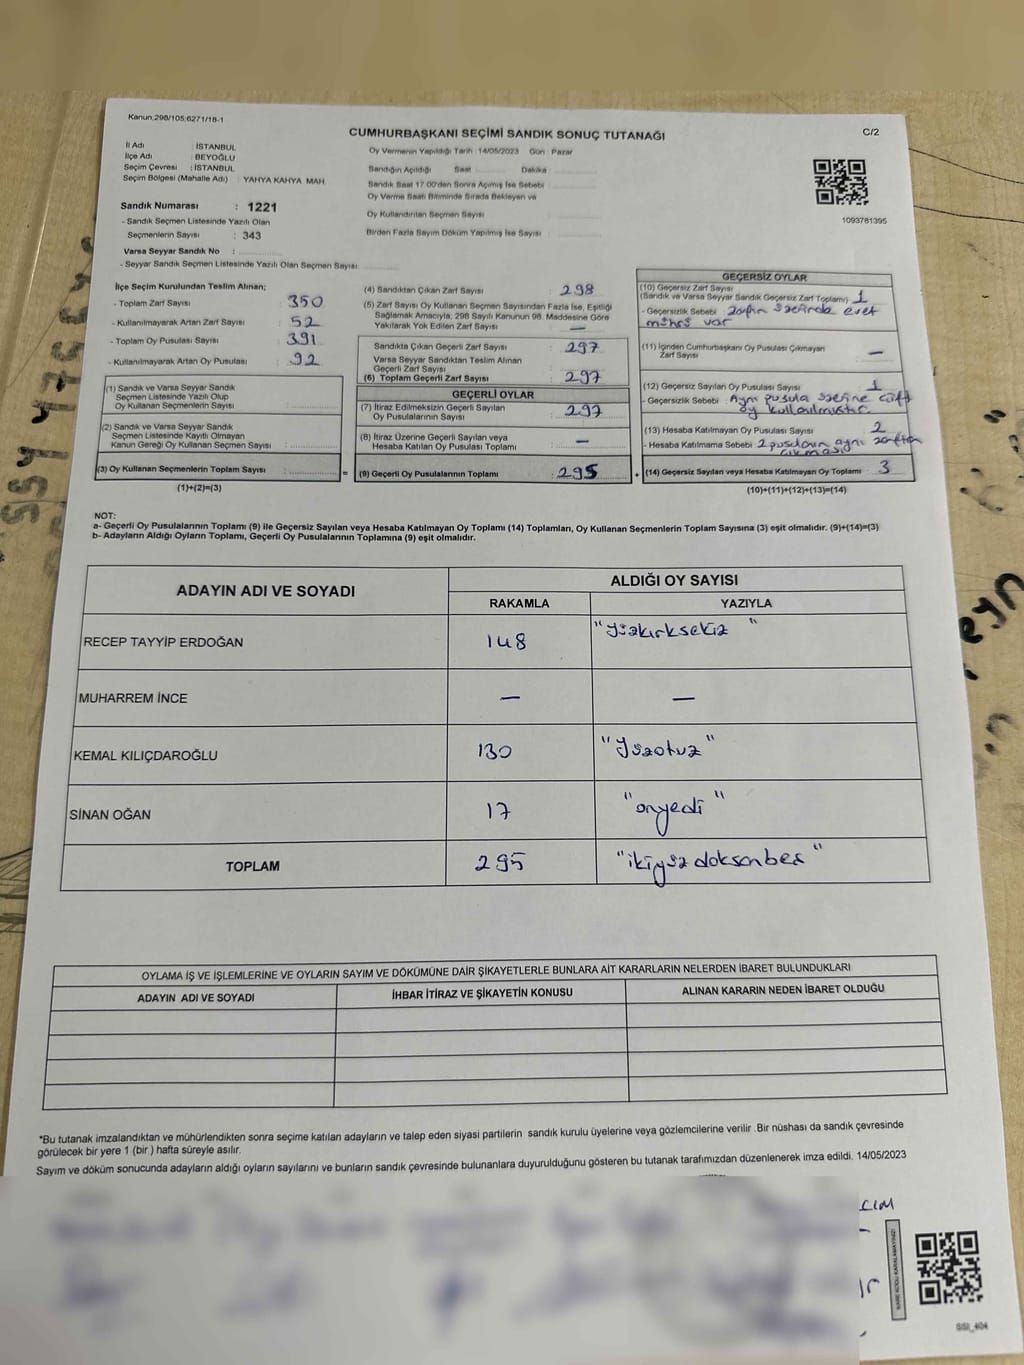 Kanun,298/105;6271/18-1
CUMHURBAŞKANI SEÇİMİ SANDIK SONUÇ TUTANAĞI
C/2
İl Adı : İSTANBUL
İlçe Adı : BEYOĞLU
Seçim Çevresi : İSTANBUL
Seçim Bölgesi (Mahalle Adı) : YAHYA KAHYA MAH.
Sandık Numarası : 1221
- Sandık Seçmen Listesinde Yazılı Olan
Seçmenlerin Sayısı : 343
Varsa Seyyar Sandık No :
- Seyyar Sandık Seçmen Listesinde Yazılı Olan Seçmen Sayısı:
Oy Vermenin Yapıldığı Tarih : 14/05/2023 Gün : Pazar
Sandığın Açıldığı Saat Dakika
Sandık Saat 17.00'den Sonra Açımış İse Sebebi :
Oy Verme Saati Bitiminde Sırada Bekleyen ve
Oy Kullandırılan Seçmen Sayısı :
Birden Fazla Sayım Döküm Yapılmış İse Sayısı :
1093781395
İlçe Seçim Kurulundan Teslim Alınan;
- Toplam Zarf Sayısı : 350
- Kullanılmayarak Artan Zarf Sayısı : 52
- Toplam Oy Pusulası Sayısı : 391
- Kullanılmayarak Artan Oy Pusulası : 92
(1) Sandık ve Varsa Seyyar Sandık
Seçmen Listesinde Yazılı Olup
Oy Kullanan Seçmenlerin Sayısı :
(2) Sandık ve Varsa Seyyar Sandık
Seçmen Listesinde Kayıtlı Olmayan
Kanun Gereği Oy Kullanan Seçmen Sayısı :
(3) Oy Kullanan Seçmenlerin Toplam Sayısı :
(1)+(2)=(3)
(4) Sandıktan Çıkan Zarf Sayısı : 298
(5) Zarf Sayısı Oy Kullanan Seçmen Sayısından Fazla İse, Eşitliği
Sağlamak Amacıyla, 298 Sayılı Kanunun 98. Maddesine Göre
Yakılarak Yok Edilen Zarf Sayısı : —
Sandıkta Çıkan Geçerli Zarf Sayısı : 297
Varsa Seyyar Sandıktan Teslim Alınan
Geçerli Zarf Sayısı :
(6) Toplam Geçerli Zarf Sayısı : 297
GEÇERLİ OYLAR
(7) İtiraz Edilmeksizin Geçerli Sayılan
Oy Pusulalarının Sayısı : 297
(8) İtiraz Üzerine Geçerli Sayılan veya
Hesaba Katılan Oy Pusulası Toplamı : —
= (9) Geçerli Oy Pusulalarının Toplamı : 295
GEÇERSİZ OYLAR
(10) Geçersiz Zarf Sayısı
(Sandık ve Varsa Seyyar Sandık Geçersiz Zarf Toplamı) : 1
- Geçersizlik Sebebi : zarfın üzerinde evet
mührü var
(11) İçinden Cumhurbaşkanı Oy Pusulası Çıkmayan
Zarf Sayısı : —
(12) Geçersiz Sayılan Oy Pusulası Sayısı : 1
- Geçersizlik Sebebi : Aynı pusula üzerine çift
oy kullanılmıştır.
(13) Hesaba Katılmayan Oy Pusulası Sayısı : 2
- Hesaba Katılmama Sebebi : 2 pusulanın aynı zarftan
çıkması
+ (14) Geçersiz Sayılan veya Hesaba Katılmayan Oy Toplamı : 3
(10)+(11)+(12)+(13)=(14)
NOT:
a- Geçerli Oy Pusulalarının Toplamı (9) ile Geçersiz Sayılan veya Hesaba Katılmayan Oy Toplamı (14) Toplamları, Oy Kullanan Seçmenlerin Toplam Sayısına (3) eşit olmalıdır. (9)+(14)=(3)
b- Adayların Aldığı Oyların Toplamı, Geçerli Oy Pusulalarının Toplamına (9) eşit olmalıdır.
ADAYIN ADI VE SOYADI
ALDIĞI OY SAYISI
RAKAMLA YAZIYLA
RECEP TAYYİP ERDOĞAN 148 "Yüzkırksekiz"
MUHARREM İNCE — —
KEMAL KILIÇDAROĞLU 130 "Yüzotuz"
SİNAN OĞAN 17 "onyedi"
TOPLAM 295 "ikiyüzdoksanbeş"
OYLAMA İŞ VE İŞLEMLERİNE VE OYLARIN SAYIM VE DÖKÜMÜNE DAİR ŞİKAYETLERLE BUNLARA AİT KARARLARIN NELERDEN İBARET BULUNDUKLARI
ADAYIN ADI VE SOYADI İHBAR İTİRAZ VE ŞİKAYETİN KONUSU ALINAN KARARIN NEDEN İBARET OLDUĞU
*Bu tutanak imzalandıktan ve mühürlendikten sonra seçime katılan adayların ve talep eden siyasi partilerin sandık kurulu üyelerine veya gözlemcilerine verilir. Bir nüshası da sandık çevresinde
görülecek bir yere 1 (bir) hafta süreyle asılır.
Sayım ve döküm sonucunda adayların aldığı oyların sayılarını ve bunların sandık çevresinde bulunanlara duyurulduğunu gösteren bu tutanak tarafımızdan düzenlenerek imza edildi. 14/05/2023
KARE KODU KARALAMAYINIZ!
SSI_404